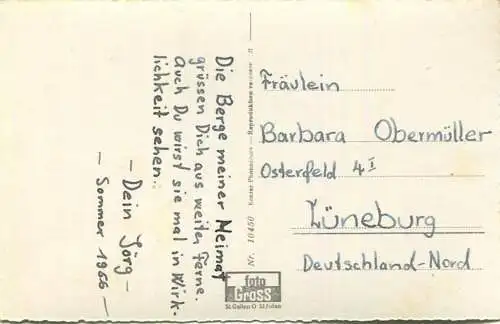 Die Berge meiner Heimat
grüssen Dich aus weiter Ferne.
Auch Du wirst sie mal in Wirk-
lichkeit sehen.
- Dein Jörg -
- Sommer 1956 -
Nr. 10450
foto
Gross
St. Gallen
Fräulein
Barbara Obermüller
Osterfeld 4 I
Lüneburg
Deutschland-Nord